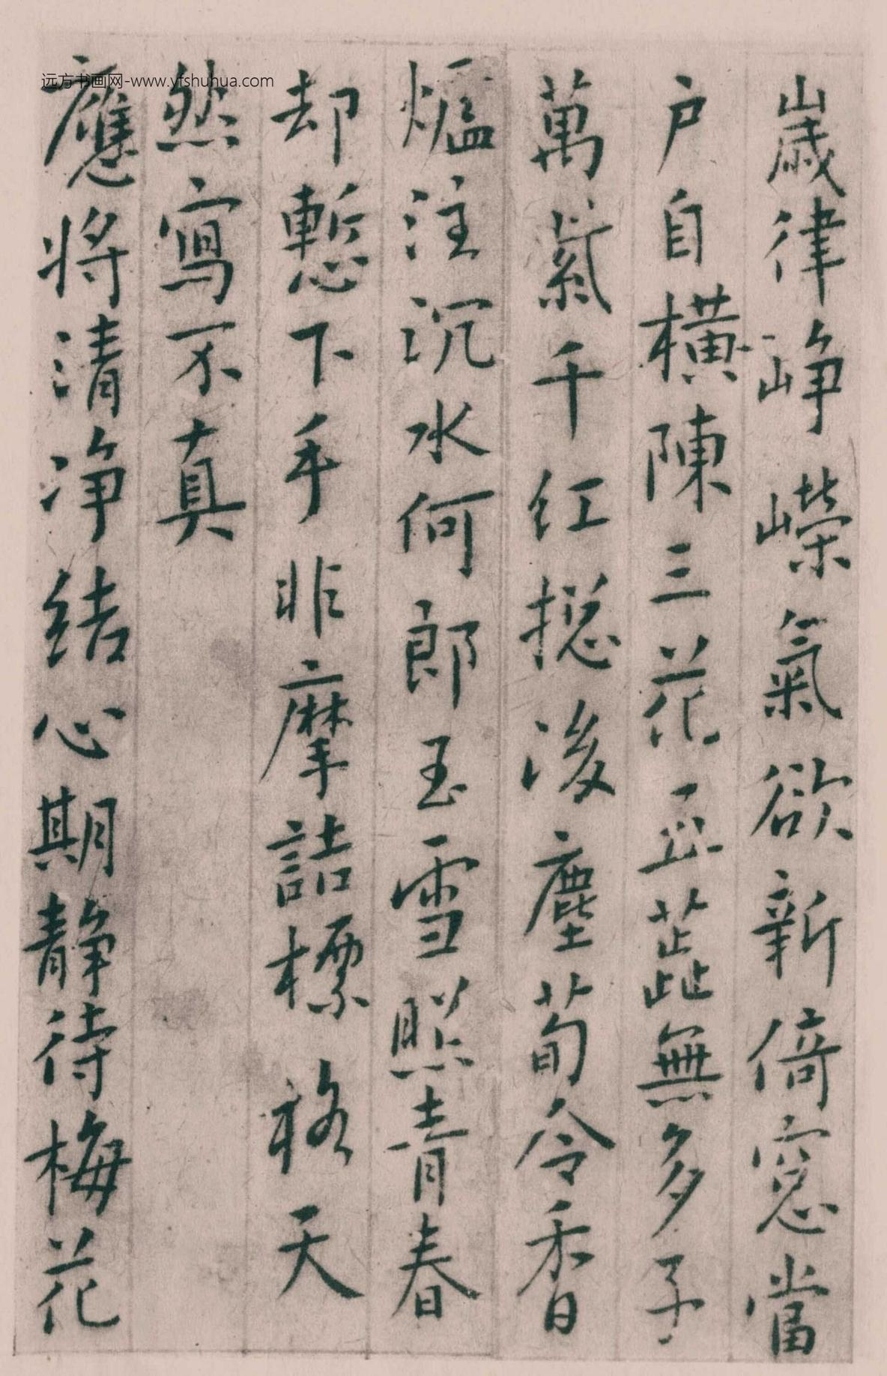 远方书画网-www.yfshuhua.com
歲律崢嶸氣欲新倚窓當
户自橫陳三花五蕋無多子
萬紫千红揔後塵荀令香
爐注沉水何郎玉雪照青春
却慙下手非摩詰標格天
然寫不真
應將清净結心期静待梅花